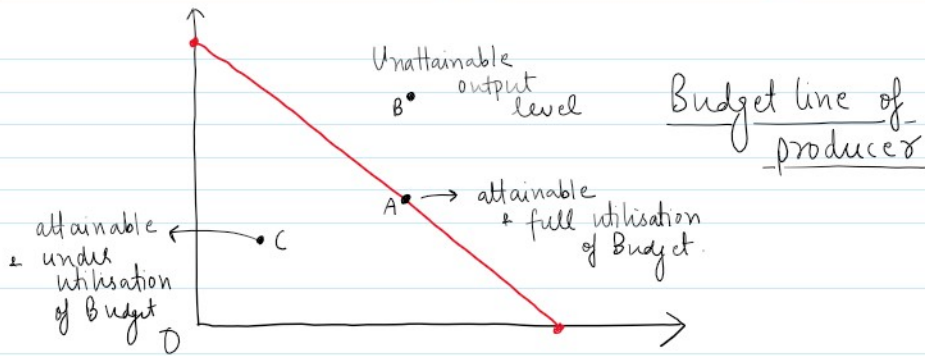 Unattainable
output
level
B
Budget line of
producer
A
attainable
& full utilisation
of Budget.
attainable
& under
utilisation
of Budget
C
O